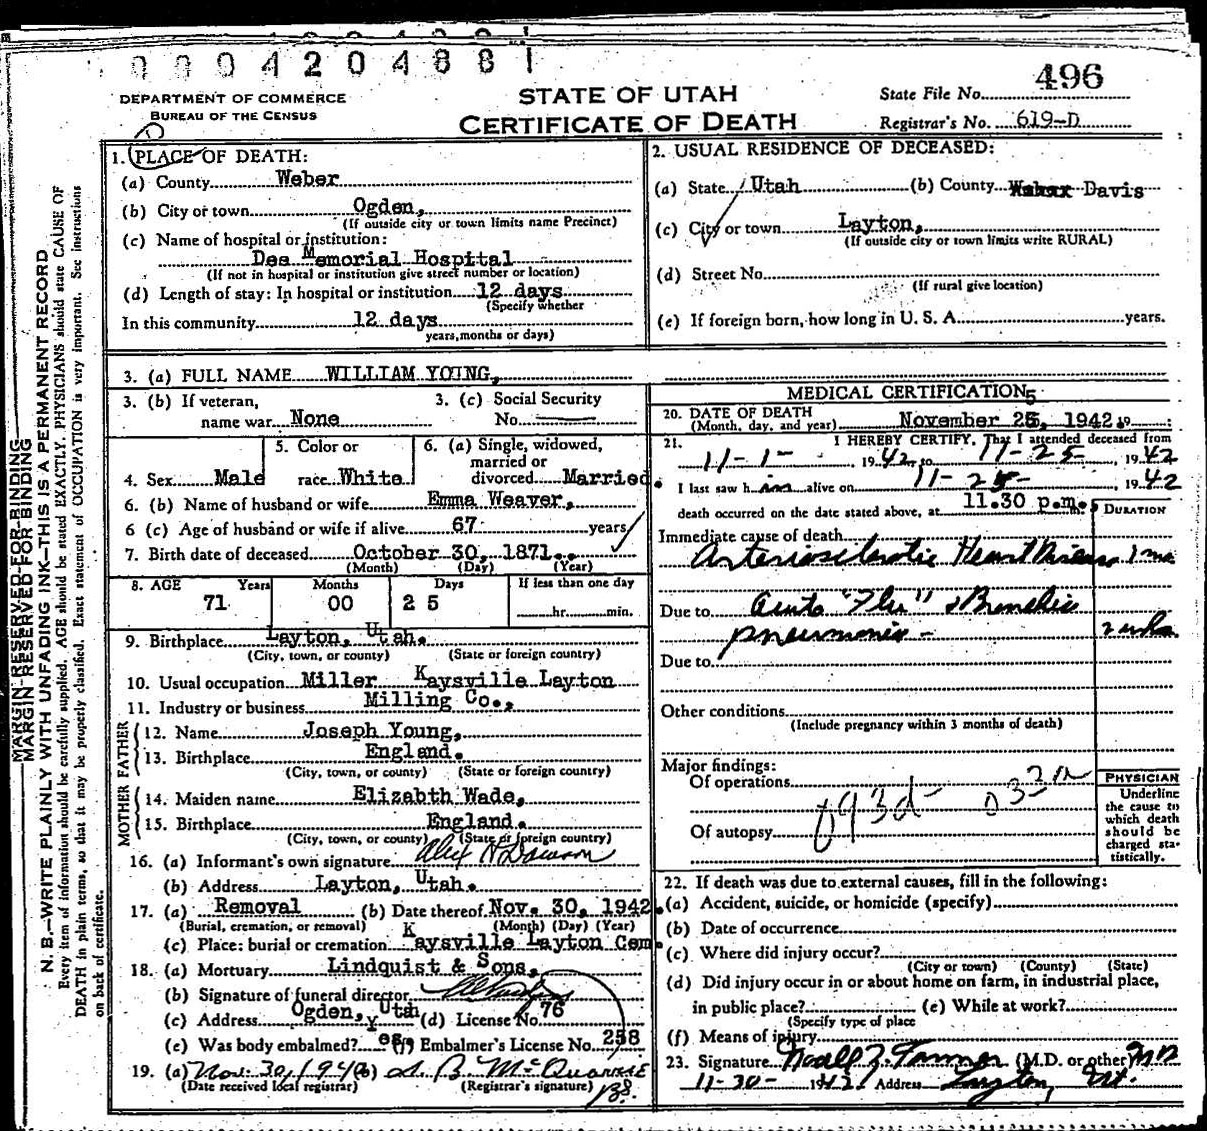 0004204881
496
DEPARTMENT OF COMMERCE
BUREAU OF THE CENSUS
STATE OF UTAH
CERTIFICATE OF DEATH
State File No.
Registrar's No. 619-D
MARGIN RESERVED FOR BINDING
MARGIN RESERVED FOR BINDING
N. B.—WRITE PLAINLY WITH UNFADING INK—THIS IS A PERMANENT RECORD
Every item of information should be carefully supplied. AGE should be stated EXACTLY. PHYSICIANS should state CAUSE OF
DEATH in plain terms, so that it may be properly classified. Exact statement of OCCUPATION is very important. See instructions
on back of certificate.
1. PLACE OF DEATH:
(a) County Weber
(b) City or town Ogden,
(If outside city or town limits name Precinct)
(c) Name of hospital or institution:
Dee Memorial Hospital
(If not in hospital or institution give street number or location)
(d) Length of stay: In hospital or institution 12 days
(Specify whether
In this community 12 days
years, months or days)
2. USUAL RESIDENCE OF DECEASED:
(a) State Utah (b) County Weber Davis
(c) City or town Layton,
(If outside city or town limits write RURAL)
(d) Street No.
(If rural give location)
(e) If foreign born, how long in U. S. A. years.
3. (a) FULL NAME WILLIAM YOUNG,
3. (b) If veteran,
name war None
3. (c) Social Security
No.
4. Sex Male
5. Color or
race White
6. (a) Single, widowed,
married or
divorced Married.
6. (b) Name of husband or wife Emma Weaver,
6 (c) Age of husband or wife if alive 67 years
7. Birth date of deceased October 30, 1871.
(Month) (Day) (Year)
8. AGE Years Months Days If less than one day
71 00 25 hr. min.
9. Birthplace Layton, Utah.
(City, town, or county) (State or foreign country)
10. Usual occupation Miller Kaysville Layton
11. Industry or business Milling Co.,
FATHER
12. Name Joseph Young,
13. Birthplace England.
(City, town, or county) (State or foreign country)
MOTHER
14. Maiden name Elizabth Wade,
15. Birthplace England.
(City, town, or county) (State or foreign country)
16. (a) Informant's own signature Alex Dawson
(b) Address Layton, Utah.
17. (a) Removal (b) Date thereof Nov. 30, 1942.
(Burial, cremation, or removal) (Month) (Day) (Year)
(c) Place: burial or cremation Kaysville Layton Cem.
18. (a) Mortuary Lindquist & Sons,
(b) Signature of funeral director
(c) Address Ogden, Utah (d) License No. 76
(e) Was body embalmed? Yes. (f) Embalmer's License No. 258
19. (a) Nov. 30, 1942 (b) A. B. McQuarrie
(Date received local registrar) (Registrar's signature)
MEDICAL CERTIFICATION
20. DATE OF DEATH
(Month, day, and year) November 25, 1942. 19
21. I HEREBY CERTIFY, That I attended deceased from
11-1- , 1942 to 11-25 , 1942
I last saw him alive on 11-25- , 1942
death occurred on the date stated above, at 11.30 p.m.
DURATION
Immediate cause of death
Arteriosclerotic Heart Disease 1 mo
Due to acute "Flu" & Bronchio
pneumonia - 2 wks.
Due to
Other conditions
(Include pregnancy within 3 months of death)
Major findings:
Of operations
Of autopsy
093d- 033a
PHYSICIAN
Underline
the cause to
which death
should be
charged sta-
tistically.
22. If death was due to external causes, fill in the following:
(a) Accident, suicide, or homicide (specify)
(b) Date of occurrence
(c) Where did injury occur?
(City or town) (County) (State)
(d) Did injury occur in or about home on farm, in industrial place,
in public place? (e) While at work?
(Specify type of place
(f) Means of injury
23. Signature Noall Z. Tanner (M.D. or other) MD
11-30- 1942 Address Layton, Ut.